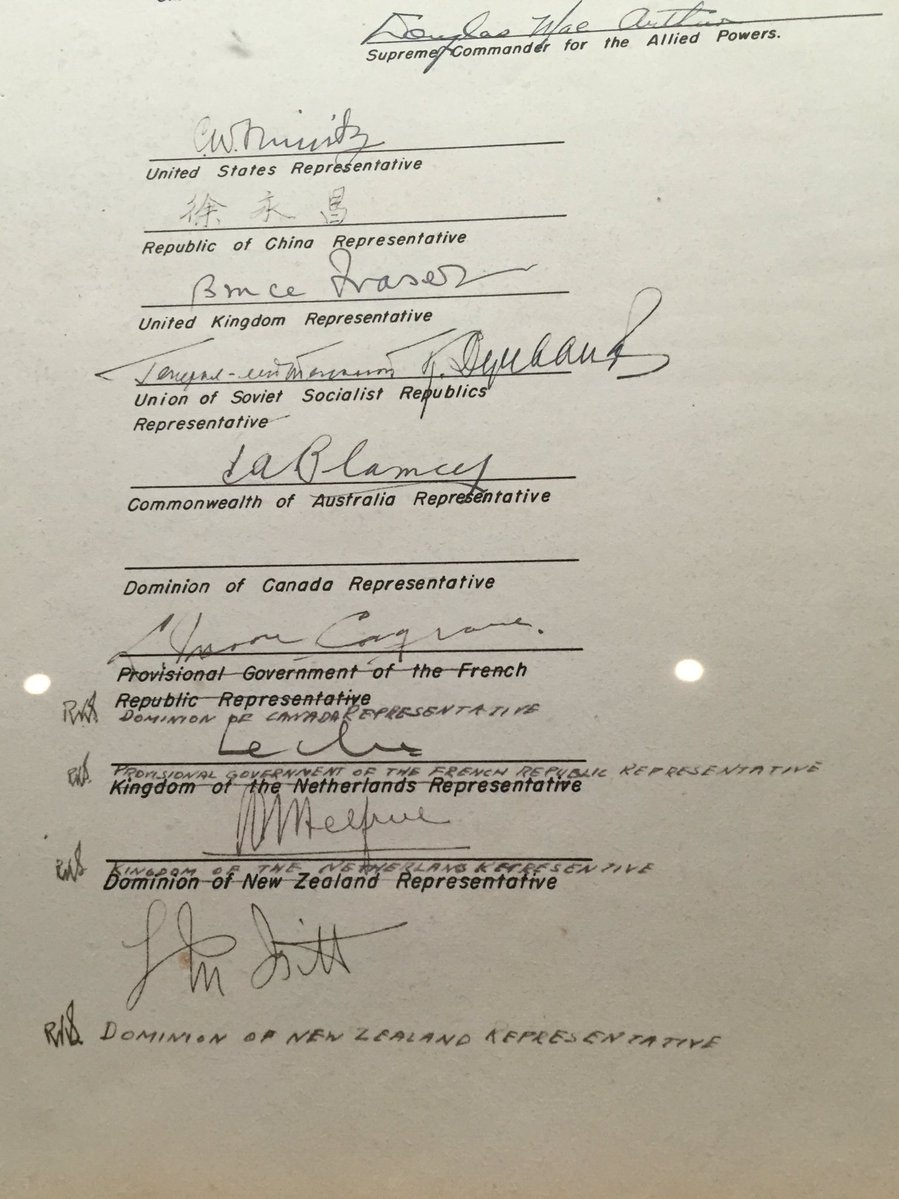 Douglas MacArthur
Supreme Commander for the Allied Powers.
C.W. Nimitz
United States Representative
徐永昌
Republic of China Representative
Bruce Fraser
United Kingdom Representative
Генерал-лейтенант К. Деревянко
Union of Soviet Socialist Republics
Representative
T A Blamey
Commonwealth of Australia Representative
Dominion of Canada Representative
L. Moore Cosgrave.
Provisional Government of the French
Republic Representative
DOMINION OF CANADA REPRESENTATIVE
Leclerc
PROVISIONAL GOVERNMENT OF THE FRENCH REPUBLIC REPRESENTATIVE
Kingdom of the Netherlands Representative
Helfrich
KINGDOM OF THE NETHERLAND REPRESENTATIVE
Dominion of New Zealand Representative
L M Isitt
DOMINION OF NEW ZEALAND REPRESENTATIVE